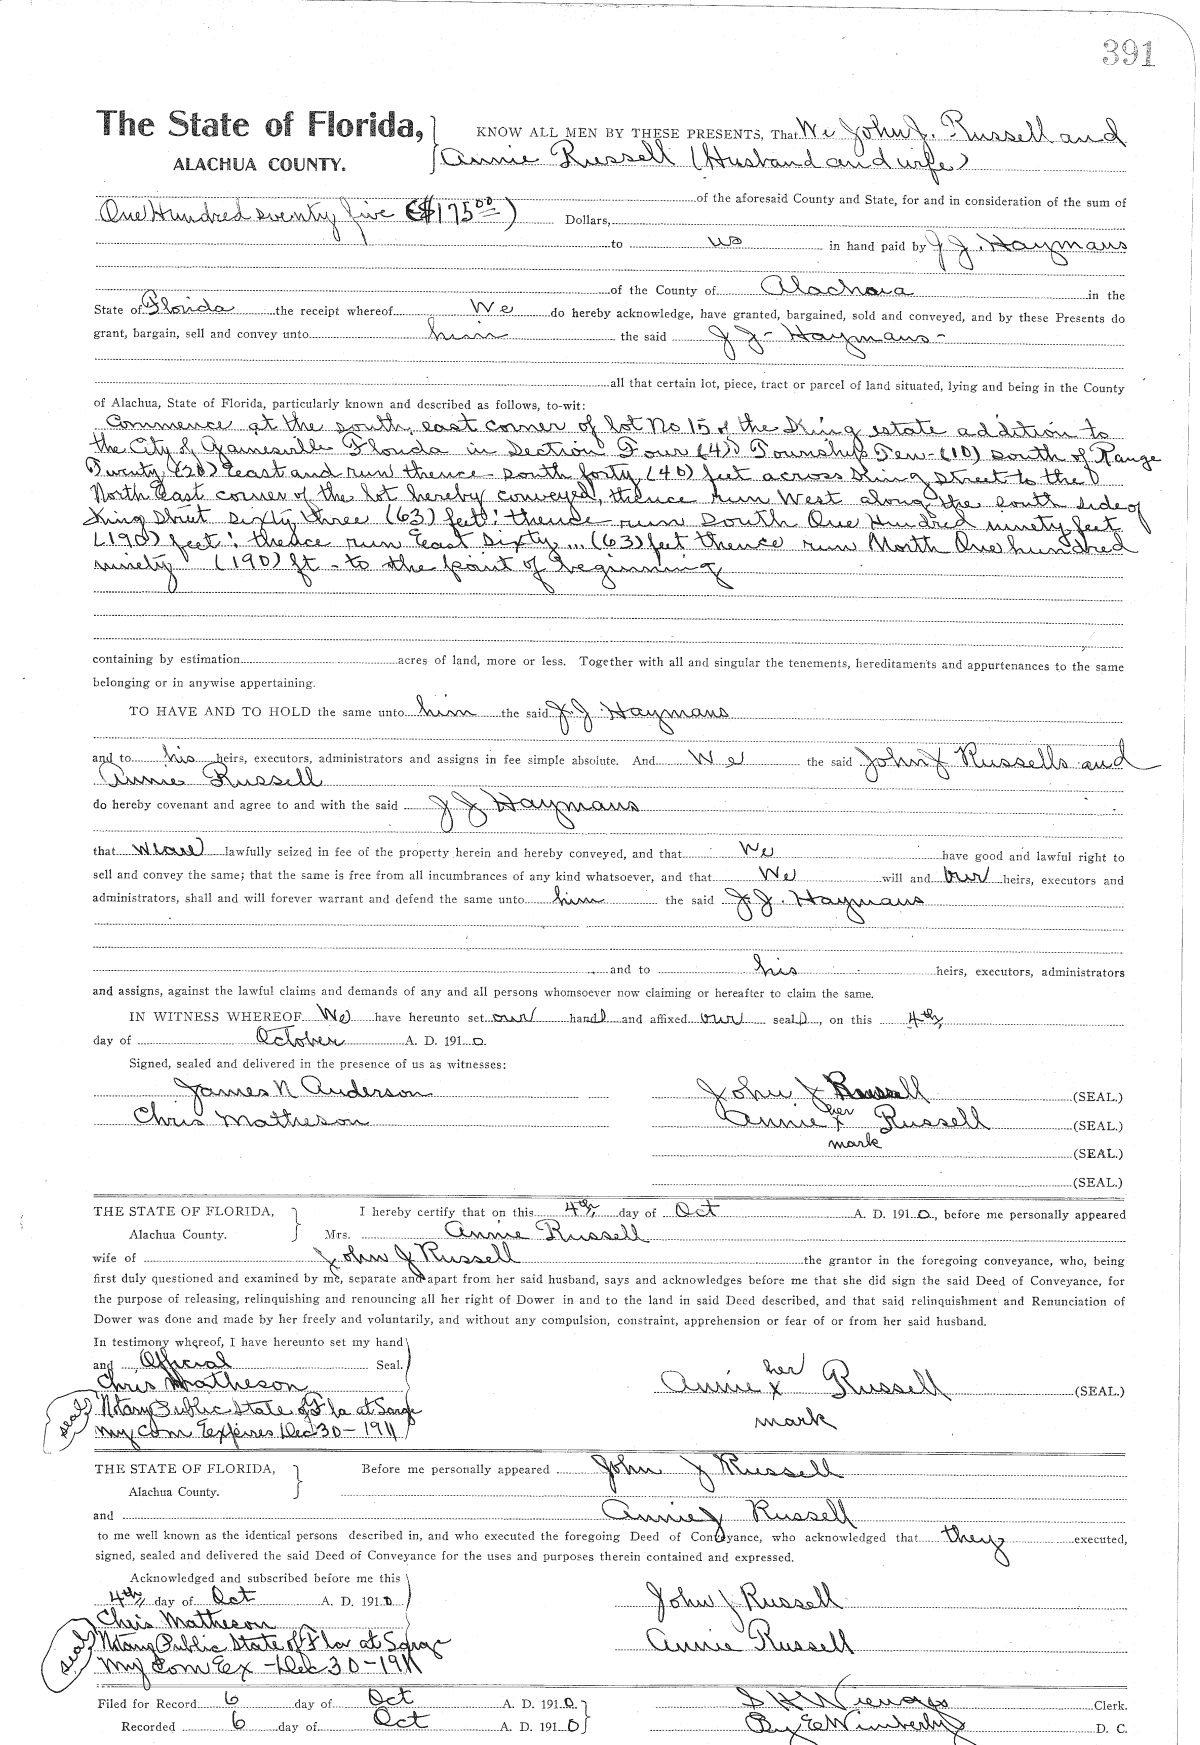 391
The State of Florida, KNOW ALL MEN BY THESE PRESENTS, That We John J. Russell and
ALACHUA COUNTY. Annie Russell (Husband and wife)
of the aforesaid County and State, for and in consideration of the sum of
One Hundred seventy five ($175.00) Dollars,
to us in hand paid by J J. Haymans
of the County of Alachua in the
State of Florida the receipt whereof We do hereby acknowledge, have granted, bargained, sold and conveyed, and by these Presents do
grant, bargain, sell and convey unto him the said J J- Haymans-
all that certain lot, piece, tract or parcel of land situated, lying and being in the County
of Alachua, State of Florida, particularly known and described as follows, to-wit:
Commence at the south east corner of lot No 15 of the King estate addition to
the City of Gainesville Florida in Section Four (4) Township Ten-(10) south of Range
Twenty (20) East and run thence south forty (40) feet across King street to the
North East corner of the lot hereby conveyed, thence run West along the south side of
King Street sixty three (63) feet; thence run south One Hundred ninety feet
(190) feet; thence run East sixty... (63) feet thence run North One hundred
ninety (190) ft - to the point of beginning
containing by estimation acres of land, more or less. Together with all and singular the tenements, hereditaments and appurtenances to the same
belonging or in anywise appertaining.
TO HAVE AND TO HOLD the same unto him the said J. J Haymans
and to his heirs, executors, administrators and assigns in fee simple absolute. And We the said John J Russells and
Annie Russell
do hereby covenant and agree to and with the said J J Haymans
that we are lawfully seized in fee of the property herein and hereby conveyed, and that We have good and lawful right to
sell and convey the same; that the same is free from all incumbrances of any kind whatsoever, and that We will and our heirs, executors and
administrators, shall and will forever warrant and defend the same unto him the said J. J. Haymans
and to his heirs, executors, administrators
and assigns, against the lawful claims and demands of any and all persons whomsoever now claiming or hereafter to claim the same.
IN WITNESS WHEREOF We have hereunto set our hands and affixed our seals, on this 4th
day of October A. D. 1910.
Signed, sealed and delivered in the presence of us as witnesses:
James N Anderson John J Russell (SEAL.)
Chris Matheson Annie her x Russell (SEAL.)
mark (SEAL.)
(SEAL.)
THE STATE OF FLORIDA, I hereby certify that on this 4th day of Oct A. D. 1910, before me personally appeared
Alachua County. Mrs. Annie Russell
wife of John J Russell the grantor in the foregoing conveyance, who, being
first duly questioned and examined by me, separate and apart from her said husband, says and acknowledges before me that she did sign the said Deed of Conveyance, for
the purpose of releasing, relinquishing and renouncing all her right of Dower in and to the land in said Deed described, and that said relinquishment and Renunciation of
Dower was done and made by her freely and voluntarily, and without any compulsion, constraint, apprehension or fear of or from her said husband.
In testimony whereof, I have hereunto set my hand
and Official Seal. her
Chris Matheson Annie x Russell (SEAL.)
seal Notary Public State of Fla at Large mark
my Com Expires Dec 30-1911
THE STATE OF FLORIDA, Before me personally appeared John J Russell
Alachua County.
and Annie J Russell
to me well known as the identical persons described in, and who executed the foregoing Deed of Conveyance, who acknowledged that they executed,
signed, sealed and delivered the said Deed of Conveyance for the uses and purposes therein contained and expressed.
Acknowledged and subscribed before me this
4th day of Oct A. D. 1910 John J Russell
Chris Matheson
seal Notary Public State of Fla at Large Annie Russell
My Com Ex - Dec 30-1911
Filed for Record 6 day of Oct A. D. 1910. S H Wienges Clerk.
Recorded 6 day of Oct A. D. 1910 By E Wimberly D. C.